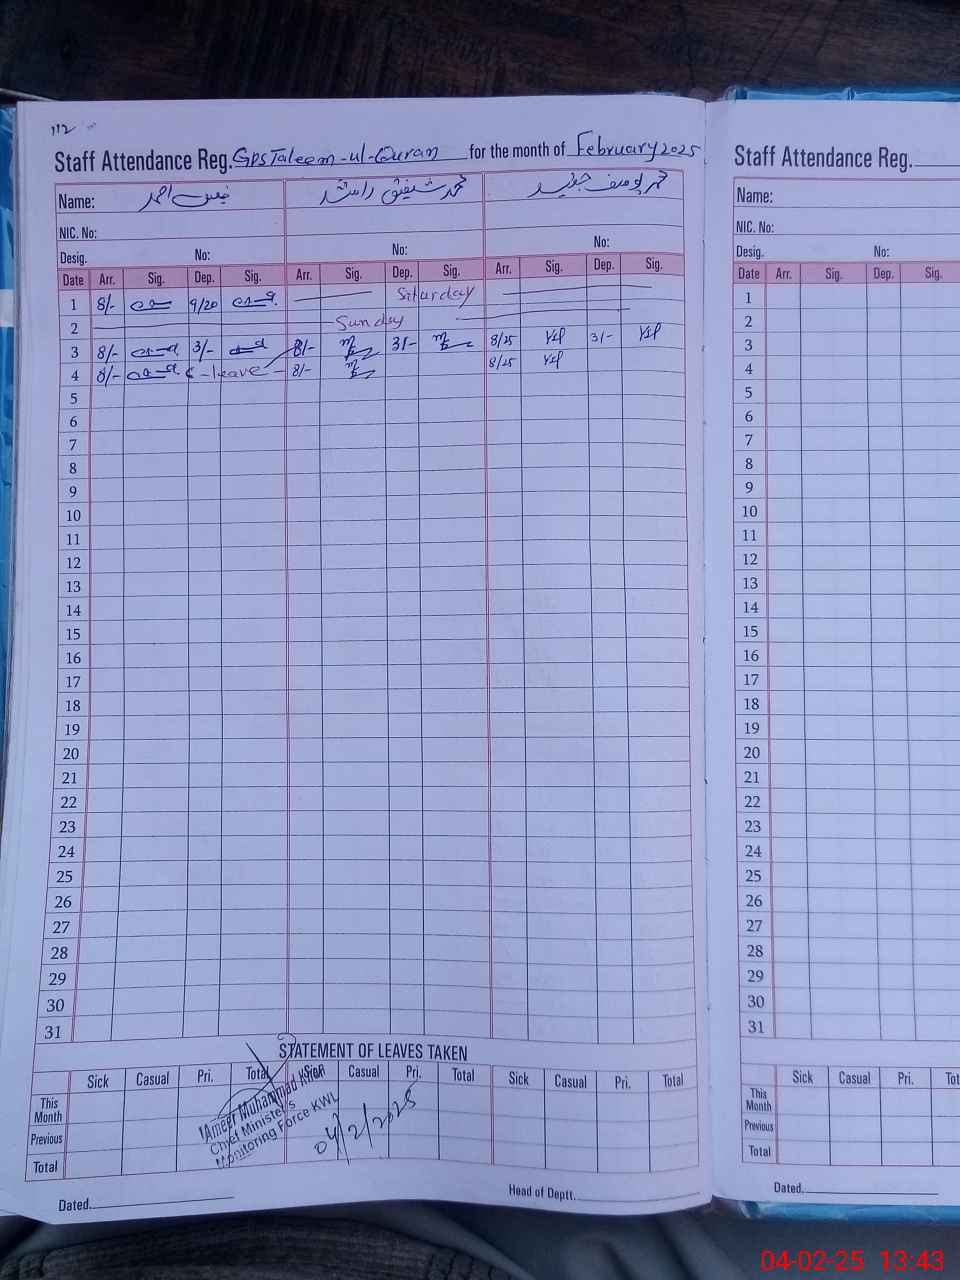 112
Staff Attendance Reg. GPS Taleem-ul-Quran for the month of February 2025
Name: نفیس احمد محمد شفیق راشد محمد یوسف جنید
NIC. No:
Desig. No: No: No:
Date Arr. Sig. Dep. Sig. Arr. Sig. Dep. Sig. Arr. Sig. Dep. Sig.
1 8/- 9/20 Saturday
2 Sunday
3 8/- 3/- 8/- 3/- 8/25 3/-
4 8/- C-leave 8/- 8/25
5
6
7
8
9
10
11
12
13
14
15
16
17
18
19
20
21
22
23
24
25
26
27
28
29
30
31
STATEMENT OF LEAVES TAKEN
Sick Casual Pri. Total Sick Casual Pri. Total Sick Casual Pri. Total
This Month
Previous
Total
Ameer Muhammad Khan
Chief Minister's
Monitoring Force KWL
04/2/2025
Dated. Head of Deptt.
Staff Attendance Reg.
Name:
NIC. No:
Desig. No:
Date Arr. Sig. Dep. Sig.
1
2
3
4
5
6
7
8
9
10
11
12
13
14
15
16
17
18
19
20
21
22
23
24
25
26
27
28
29
30
31
Sick Casual Pri. Tot
This Month
Previous
Total
Dated.
04-02-25 13:43